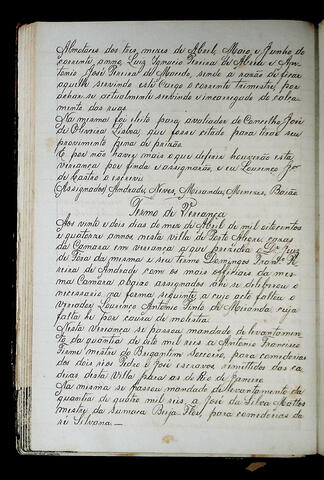 Almotaces dos tres mezes de Abril, Maio e Junho do
corrente anno, Luis Ignacio Pereira de Abreu e An-
tonio José Pereira de Macedo, sendo a razão de ficar
aquelle servindo este cargo o corrente trimestre, por
achar-se actualmente servindo e incarregado do calça-
mento das ruas.
Na mesma foi eleito para avaliador do Concelho José
de Oliveira Lisboa, que fosse citado para tirar seu
provimento pena de prisão.
E por não haver mais o que deferir houverão esta
veriança por finda e assignarão, e eu Lourenço Jr.
de Castro o escrevi.
Assignados Andrade, Neves, Miranda, Menezes, Baião
Termo de Veriança
Aos vinte e dois dias do mez de Abril de mil oitocentos
e quatorze annos nesta villa de Porto Alegre, cazas
da Camara em veriança a que prezidio o Dr. Juiz
de Fóra da mesma e seu termo Domingos Franco. Pe-
reira de Andrade com os mais officiais da mes-
ma Camara abaixo assignados ahi se deliberou o
necessario na forma seguinte a cujo acto faltou o
Vereador Lourenço Antonio Pinto de Miranda cuja
falta he por cauza de molestia.
Nesta veriança se passou mandado de levantamen-
to da quantia de oito mil réis a Antonio Francisco
Firme mestre do Bergantim Soccorro, para comedorias
dos dois réos Pedro e José escravos remettidos das ca-
deias desta Villa para as do Rio de Janeiro.
Na mesma se passou mandado de levantamento da
quantia de quatro mil réis a José da Silva Mattos
mestre da sumaca Beija Flor, para comedorias da
ré Silvana.—